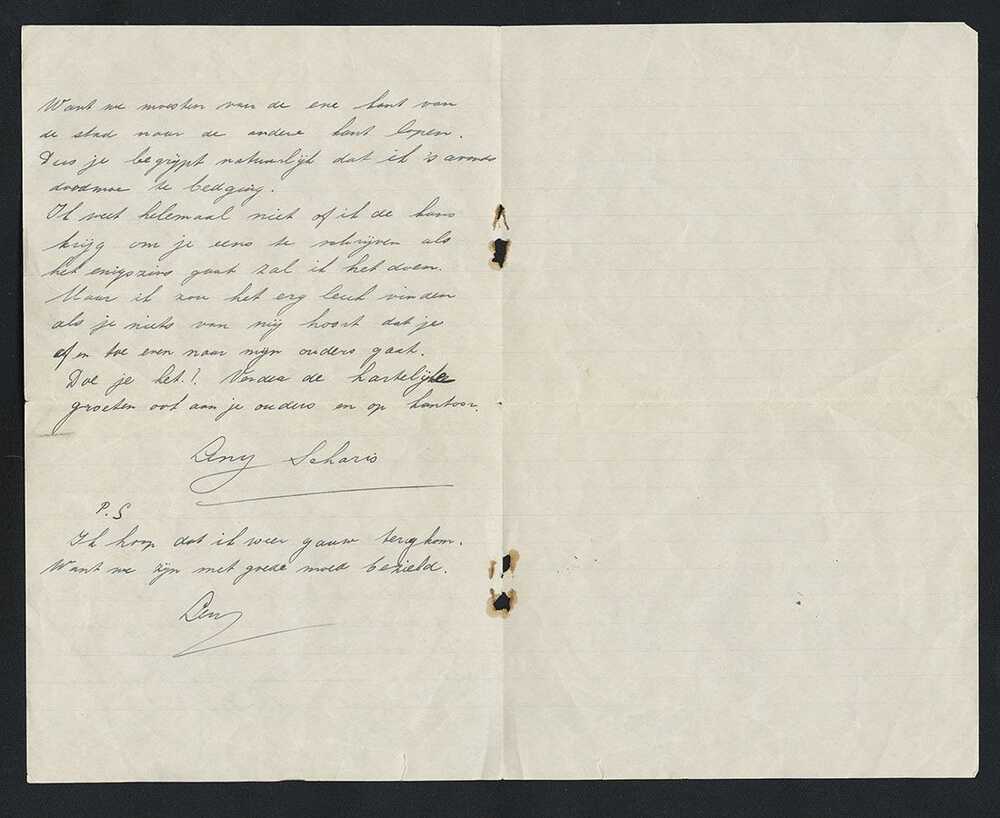 Want we moesten van de ene kant van
de stad naar de andere kant lopen.
Dus je begrijpt natuurlijk dat ik 's avonds
doodmoe te bed ging.
Ik weet helemaal niet of ik de kans
krijg om je eens te schrijven als
het enigszins gaat zal ik het doen.
Maar ik zou het erg leuk vinden
als je niets van mij hoort dat je
af en toe even naar mijn ouders gaat.
Doe je het.! Verder de hartelijke
groeten ook aan je ouders en op kantoor.
P.S
Ik hoop dat ik weer gauw terugkom.
Want we zijn met goede moed bezield.